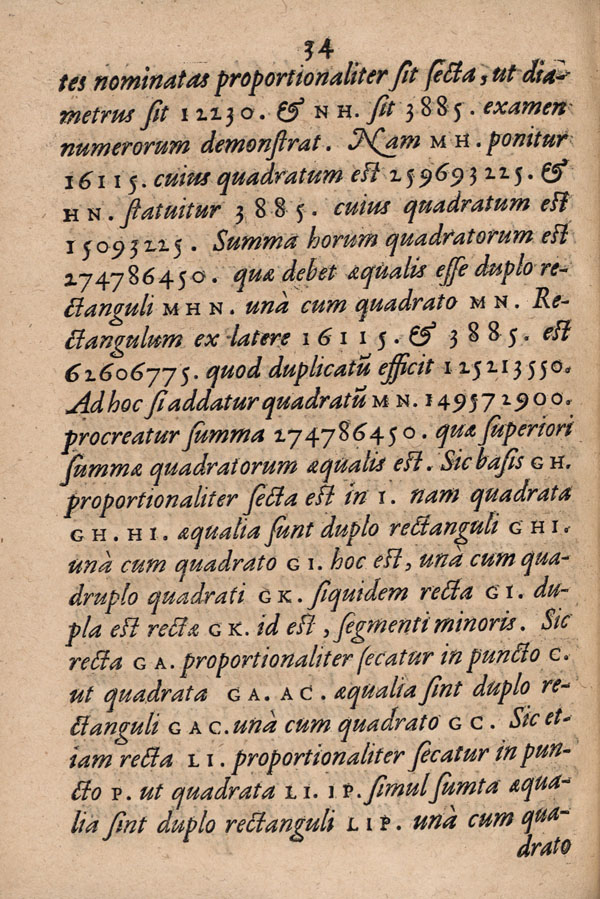 34
tes nominatas proportionaliter sit secta, ut dia-
metrus sit 12230. & NH. sit 3885. examen
numerorum demonstrat. Nam MH. ponitur
16115. cuius quadratum est 259693225. &
HN. statuitur 3885. cuius quadratum est
15093225. Summa horum quadratorum est
274786450. quæ debet æqualis esse duplo re-
ctanguli MHN. unà cum quadrato MN. Re-
ctangulum ex latere 16115. & 3885. est
62606775. quod duplicatū efficit 125213550.
Ad hoc si addatur quadratū MN. 149572900.
procreatur summa 274786450. quæ superiori
summæ quadratorum æqualis est. Sic basis GH.
proportionaliter secta est in I. nam quadrata
GH. HI. æqualia sunt duplo rectanguli GHI.
unà cum quadrato GI. hoc est, unà cum qua-
druplo quadrati GK. siquidem recta GI. du-
pla est rectæ GK. id est, segmenti minoris. Sic
recta GA. proportionaliter secatur in puncto C.
ut quadrata GA. AC. æqualia sint duplo re-
ctanguli GAC. unà cum quadrato GC. Sic et-
iam recta LI. proportionaliter secatur in pun-
cto P. ut quadrata LI. IP. simul sumta æqua-
lia sint duplo rectanguli LIP. unà cum qua-
drato